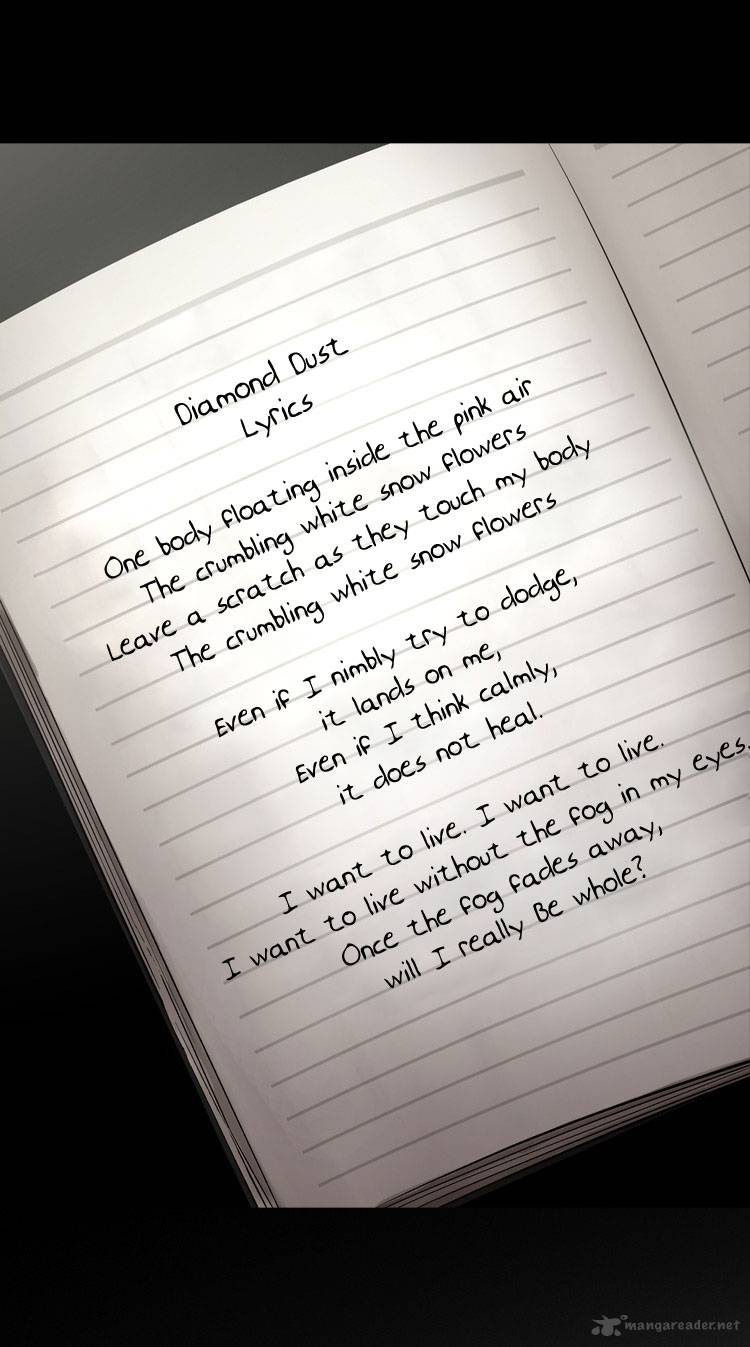 Diamond Dust
Lyrics
One body floating inside the pink air
The crumbling white snow flowers
Leave a scratch as they touch my body
The crumbling white snow flowers
Even if I nimbly try to dodge,
it lands on me,
Even if I think calmly,
it does not heal.
I want to live. I want to live.
I want to live without the fog in my eyes.
Once the fog fades away,
will I really Be whole?
mangareader.net